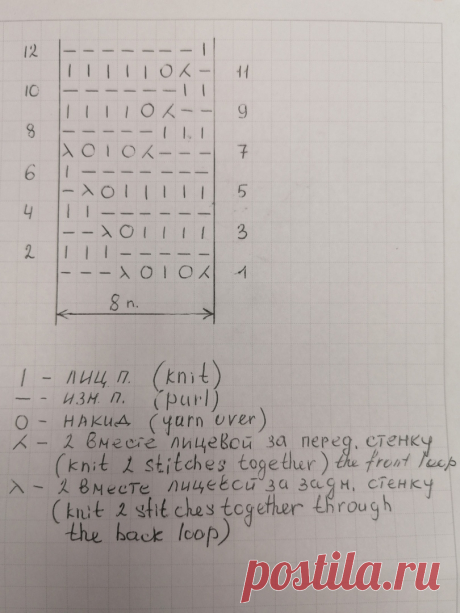 12 | − − − − − − − |
| | | | | O ⅄ − 11
10 − − − − − − | |
| | | | O ⅄ − − 9
8 − − − − − | | |
λ O | O ⅄ − − − 7
6 | − − − − − − −
− λ O | | | | | 5
4 | | − − − − − −
− − λ O | | | | 3
2 | | | − − − − −
− − − λ O | O ⅄ 1
8 п.
| - лиц. п. (knit)
— - изн. п. (purl)
O - накид (yarn over)
⅄ - 2 вместе лицевой за перед. стенку
(knit 2 stitches together) the front loop
λ - 2 вместе лицевой за задн. стенку
(knit 2 stitches together through
the back loop)
postila.ru